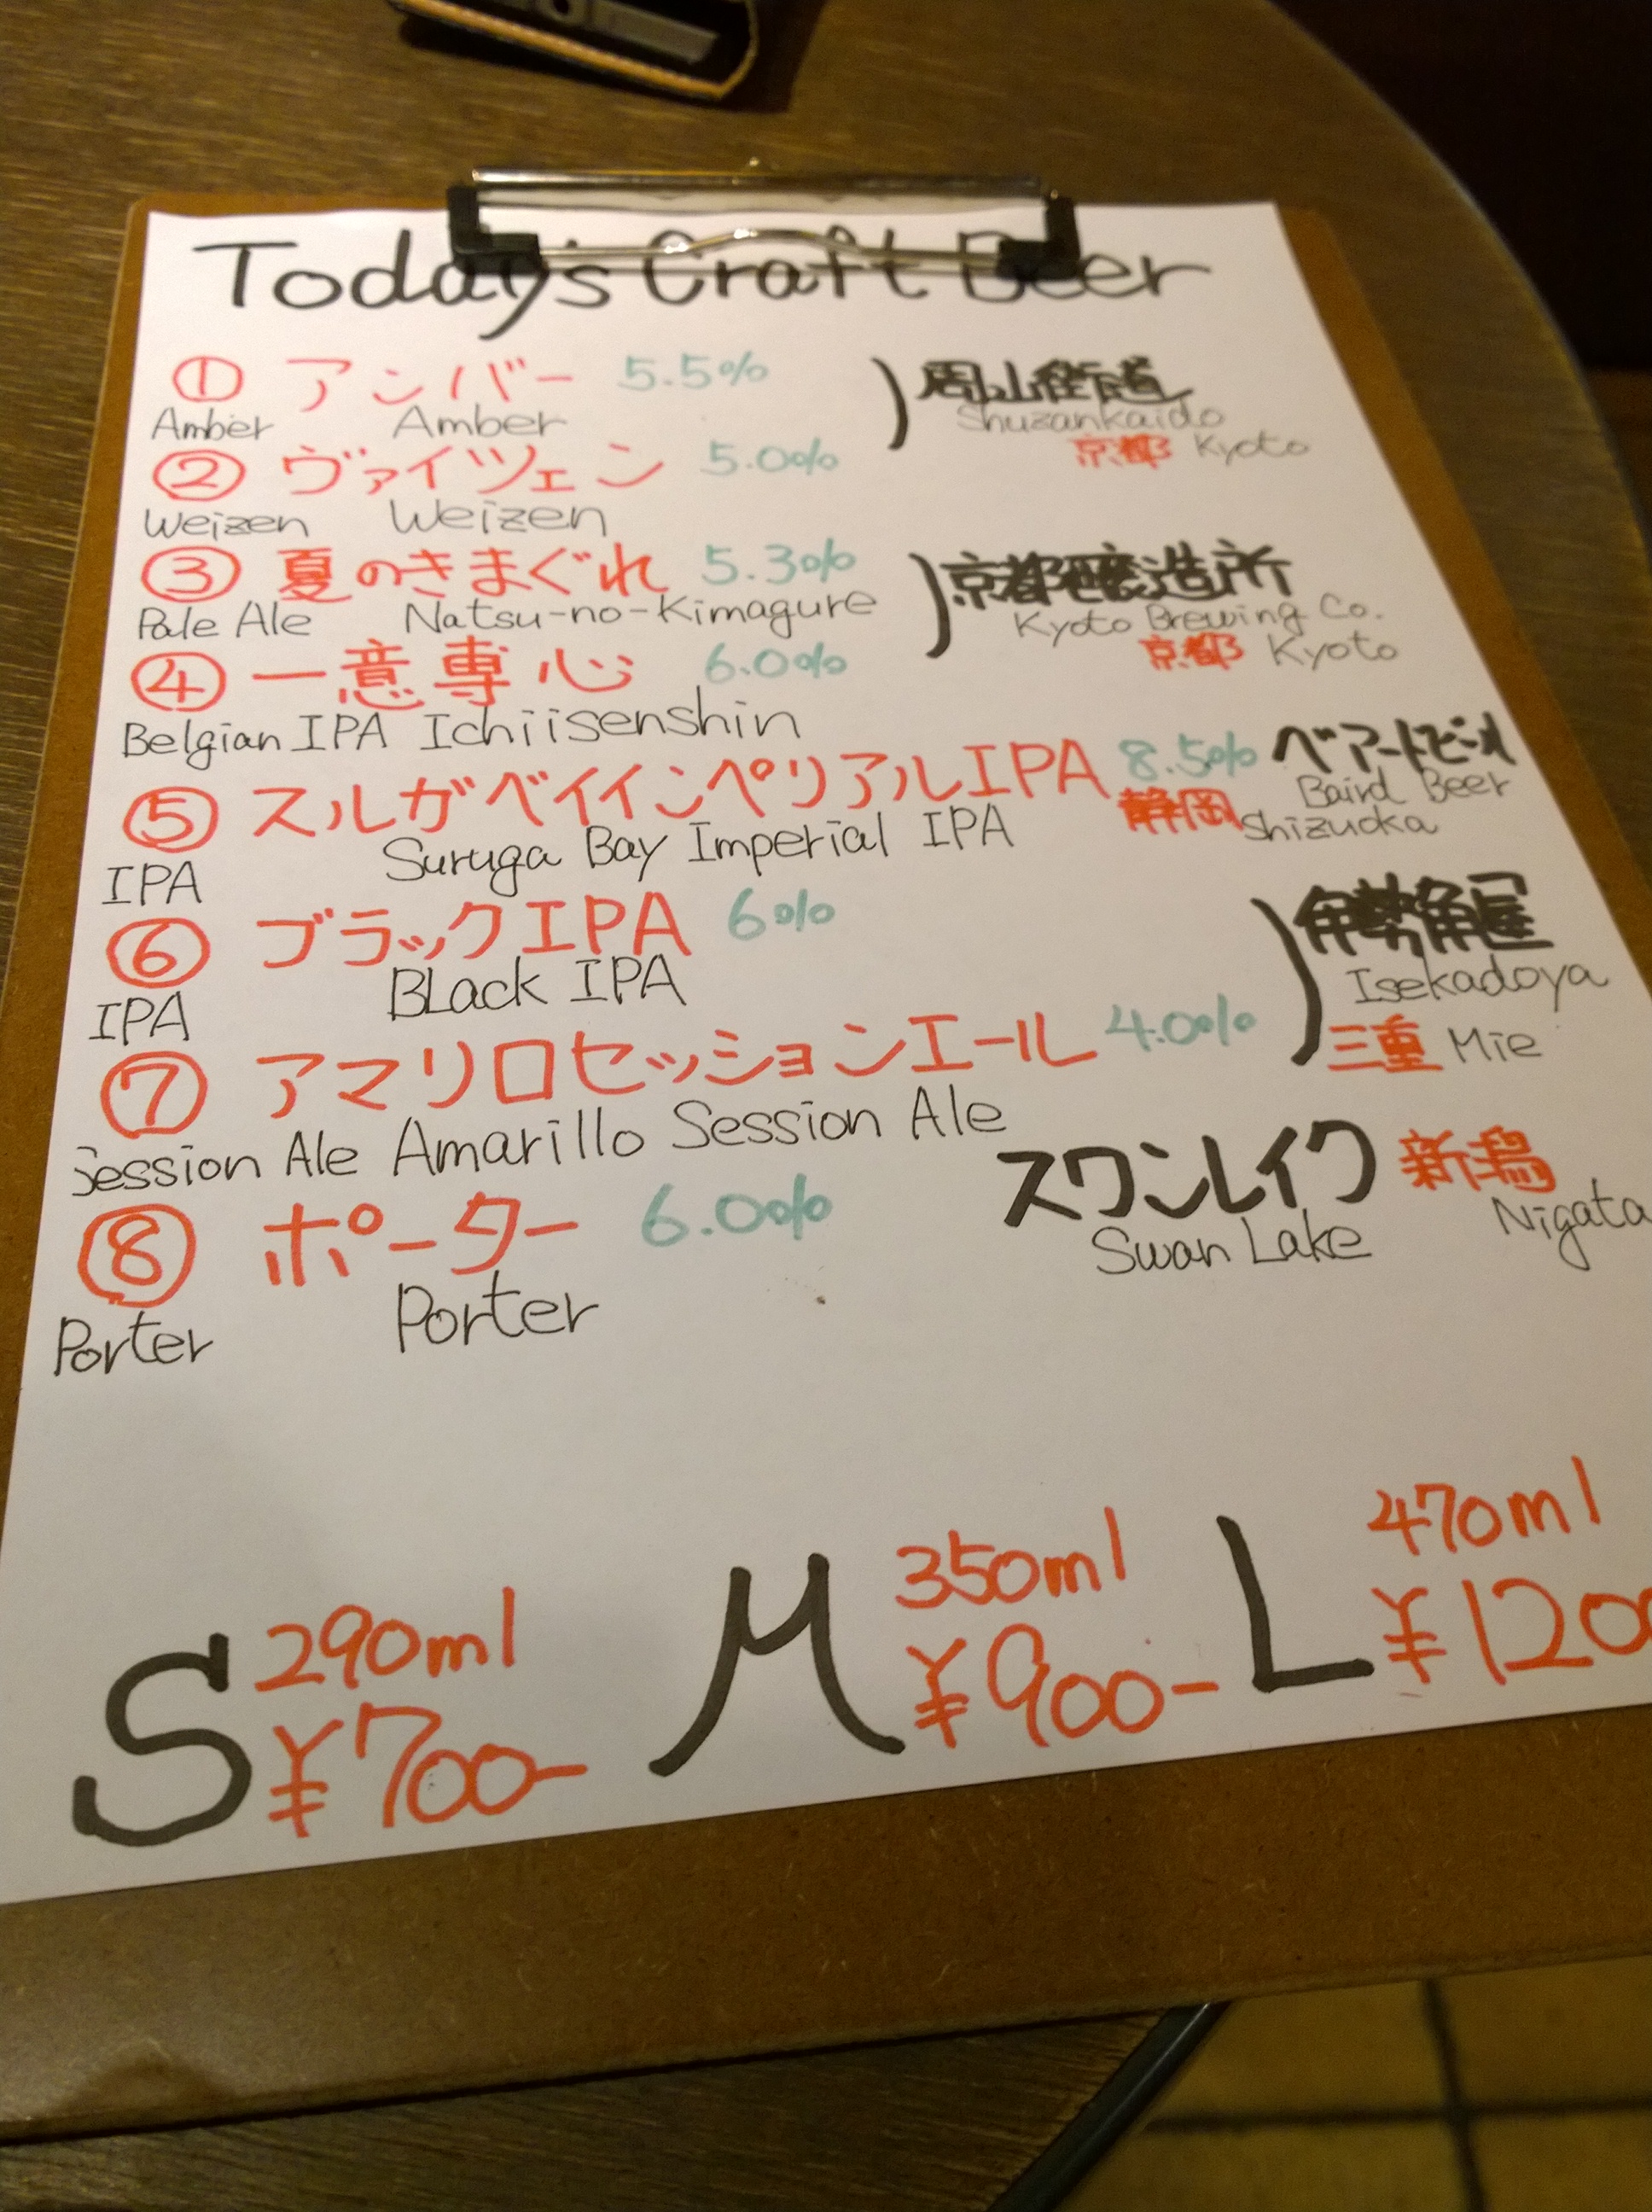 Today's Craft Beer
① アンバー 5.5% ) 周山街道
Amber Amber Shuzankaido
京都 Kyoto
② ヴァイツェン 5.0%
Weizen Weizen
③ 夏のきまぐれ 5.3% ) 京都醸造所
Pale Ale Natsu-no-Kimagure Kyoto Brewing Co.
京都 Kyoto
④ 一意専心 6.0%
Belgian IPA Ichiisenshin
⑤ スルガベイインペリアルIPA 8.5% ベアードビール
Baird Beer
IPA Suruga Bay Imperial IPA 静岡 Shizuoka
⑥ ブラックIPA 6% ) 伊勢角屋
IPA Black IPA Isekadoya
三重 Mie
⑦ アマリロセッションエール 4.0%
Session Ale Amarillo Session Ale
⑧ ポーター 6.0% スワンレイク 新潟
Porter Porter Swan Lake Nigata
S 290ml M 350ml L 470ml
¥700- ¥900- ¥1200